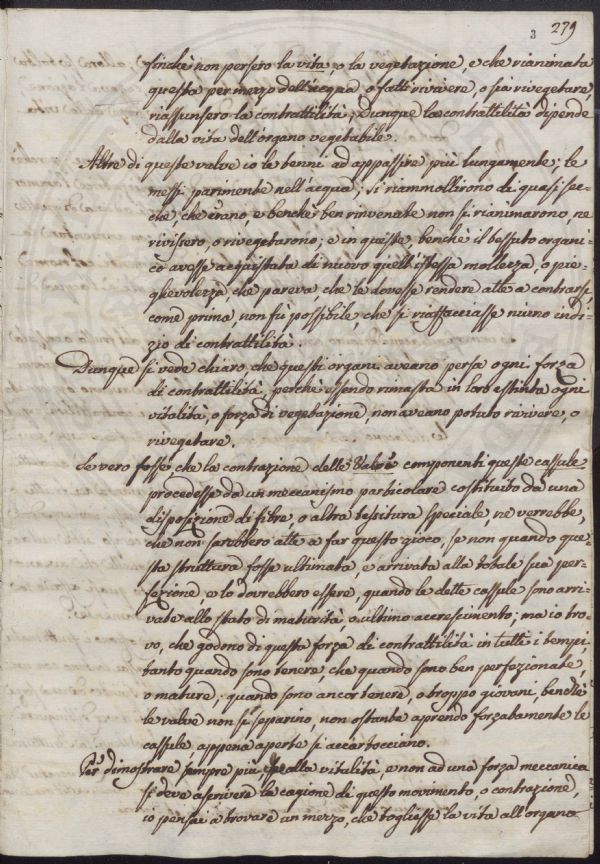 3 279
finchè non persero la vita, o la vegetazione, e che rianimata
questa per mezzo dell'acqua, o fatti rivivere, o sia rivegetare,
riassunsero la contrattilità; Dunque la contrattilità dipende
dalla vita dell'organo vegetabile.
Altre di queste valve io le tenni ad appassire più lungamente; le
messi parimente nell'acqua; si riammollirono di quasi sec-
che, che erano, e benchè ben rinvenute non si rianimarono, ne
rivissero, o rivegetarono; e in queste, benchè il tessuto organi-
co avesse acquistata di nuovo quell'istessa mollezza, o pie-
ghevolezza che pareva, che le dovesse rendere atte a contrarsi,
come prima, non fù possibile, che si riaffacciasse niuno indi-
zio di contrattilità.
Dunque si vede chiaro, che questi organi aveano persa ogni forza
di contrattilità, perchè essendo rimasta in loro estinta ogni
vitalità, o forza di vegetazione, non aveano potuto rivivere, o
rivegetare.
Se vero fosse, che la contrazione delle Valve componenti queste cassule
procedesse da un meccanismo particolare costituito da una
disposizione di fibre, o altra tessitura speciale, ne verrebbe,
che non sarebbero atte a far questo gioco, se non quando que-
sta struttura fosse ultimata, e arrivata alla totale sua per-
fezione, e lo dovrebbero essere, quando le dette cassule sono arri-
vate allo stato di maturità, o ultimo accrescimento; ma io tro-
vo, che godono di questa forza di contrattilità in tutti i tempi,
tanto quando sono tenere, che quando sono ben perfezionate,
o mature; quando sono ancor tenere, o troppo giovani, benchè
le valve non si separino, non ostante aprendo forzatamente le
cassule, appena aperte si accartocciano.
Per dimostrare sempre più che alla vitalità, e non ad una forza meccanica
si deve ascrivere la cagione di questo movimento, o contrazione,
io pensai a trovare un mezzo, che togliesse la vita all'organo